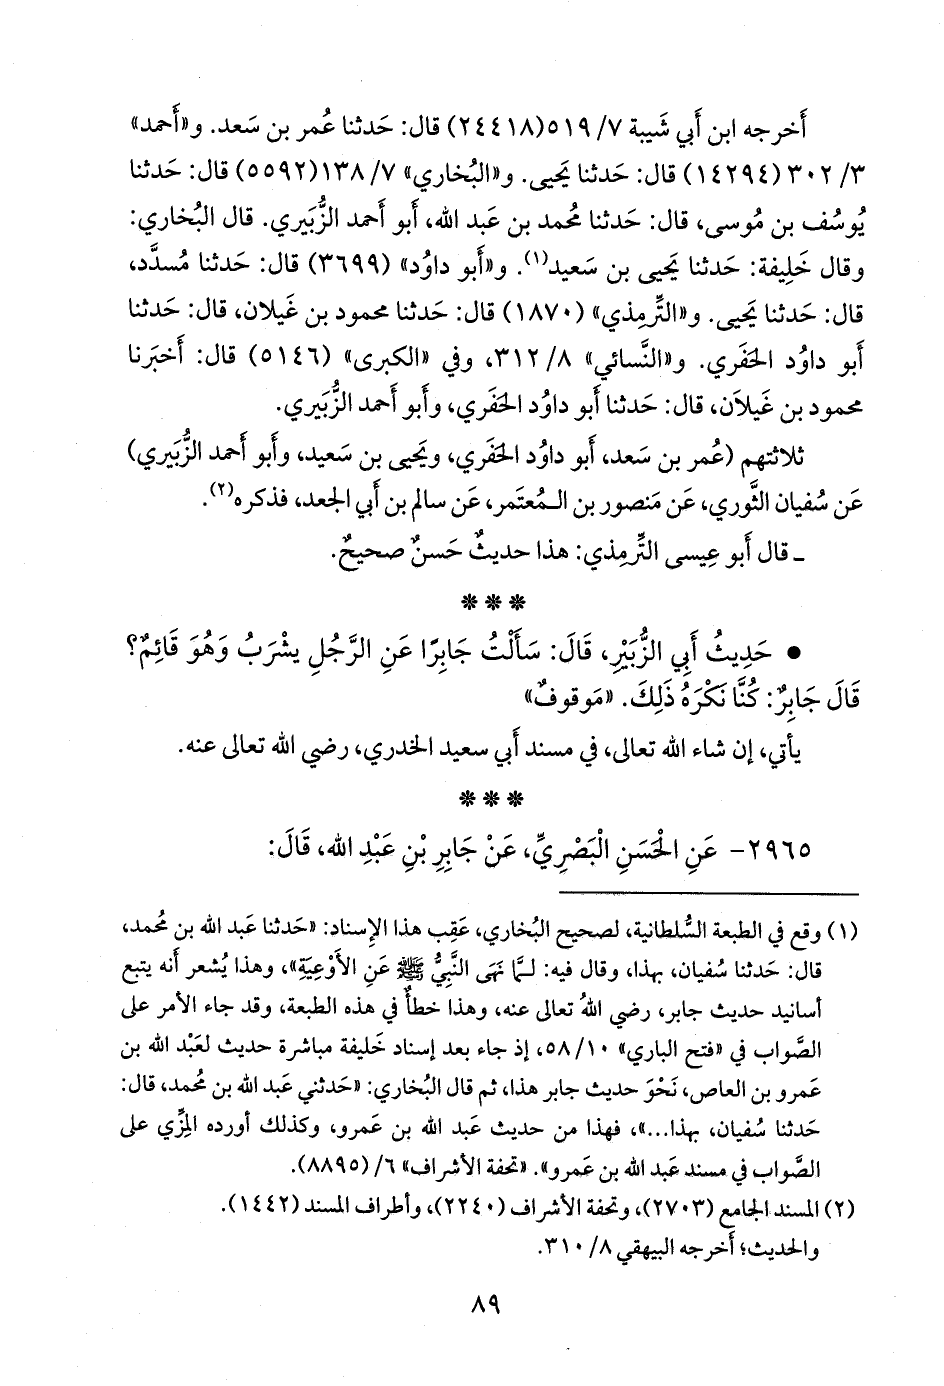 أَخرجه ابن أَبي شَيبة ٧/ ٥١٩(٢٤٤١٨) قال: حَدثنا عُمر بن سَعد. و«أَحمد»
٣/ ٣٠٢(١٤٢٩٤) قال: حَدثنا يَحيى. و«البُخاري» ٧/ ١٣٨(٥٥٩٢) قال: حَدثنا
يُوسُف بن مُوسى، قال: حَدثنا مُحمد بن عَبد الله، أَبو أَحمد الزُّبَيري. قال البُخاري:
وقال خَلِيفة: حَدثنا يَحيى بن سَعيد(١). و«أَبو داوُد» (٣٦٩٩) قال: حَدثنا مُسدَّد،
قال: حَدثنا يَحيى. و«التِّرمِذي» (١٨٧٠) قال: حَدثنا محمود بن غَيلان، قال: حَدثنا
أَبو داوُد الحَفَري. و«النَّسائي» ٨/ ٣١٢، وفي «الكبرى» (٥١٤٦) قال: أَخبَرنا
محمود بن غَيلاَن، قال: حَدثنا أَبو داوُد الحَفَري، وأَبو أَحمد الزُّبَيري.
ثلاثتهم (عُمر بن سَعد، أَبو داوُد الحَفَري، ويَحيى بن سَعيد، وأَبو أَحمد الزُّبَيري)
عَن سُفيان الثَّوري، عَن مَنصور بن الـمُعتَمر، عَن سالم بن أَبي الجَعد، فذكره(٢).
ـ قال أَبو عِيسى التِّرمِذي: هذا حديثٌ حَسنٌ صحيحٌ.
* * *
• حَدِيثُ أَبِي الزُّبَيْرِ، قَالَ: سَأَلْتُ جَابِرًا عَنِ الرَّجُلِ يشْرَبُ وَهُوَ قَائِمٌ؟
قَالَ جَابِرٌ: كُنَّا نَكْرَهُ ذَلِكَ. «مَوقوفٌ»
يأتي، إن شاء الله تعالى، في مسند أَبي سعيد الخدري، رضي الله تعالى عنه.
* * *
٢٩٦٥- عَنِ الْحَسَنِ الْبَصْرِيِّ، عَنْ جَابِرِ بْنِ عَبْدِ الله، قَالَ:
(١) وقع في الطبعة السُّلطانية، لصحيح البُخاري، عَقِب هذا الإسناد: «حَدثنا عَبد الله بن مُحمد،
قال: حَدثنا سُفيان، بهذا، وقال فيه: لـمَّا نَهَى النَّبيُّ ﷺ عَنِ الأَوْعِيَةِ»، وهذا يُشعر أنه يتبع
أسانيد حديث جابر، رضي اللهُ تعالى عنه، وهذا خطأٌ في هذه الطبعة، وقد جاء الأمر على
الصَّواب في «فتح الباري» ١٠/ ٥٨، إذ جاء بعد إسناد خَليفة مباشرة حديث لعَبْد الله بن
عَمرو بن العاص، نَحْوَ حديث جابر هذا، ثم قال البُخاري: «حَدثني عَبد الله بن مُحمد، قال:
حَدثنا سُفيان، بهذا...»، فهذا من حديث عَبد الله بن عَمرو، وكذلك أورده المِزِّي على
الصَّواب في مسند عَبد الله بن عَمرو». «تحفة الأشراف» ٦/ (٨٨٩٥).
(٢) المسند الجامع (٢٧٠٣)، وتحفة الأشراف (٢٢٤٠)، وأطراف المسند (١٤٤٢).
والحديث؛ أَخرجه البيهقي ٨/ ٣١٠.
٨٩